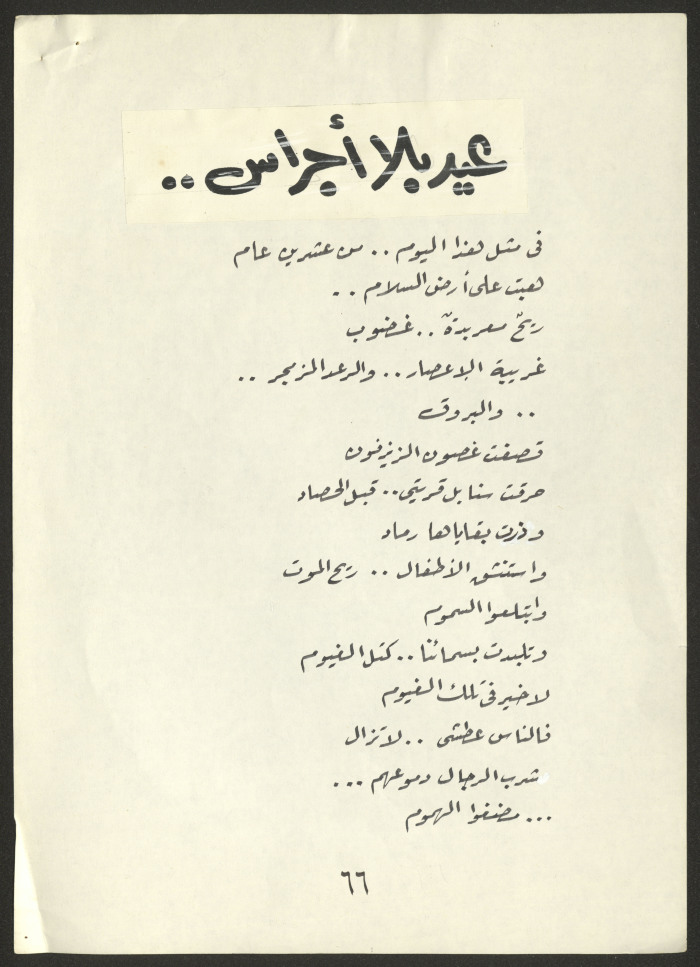 عيد بلا أجراس ..
فى مثل هذا اليوم .. من عشرين عام
هبت على أرض السلام ..
ريحٌ معربدةٌ .. غضوب
غريبة الإعصار .. والرعد المزمجر ..
.. والبروق
قصفت غصون الزيزفون
حرقت سنابل قريتي .. قبل الحصاد
وذرت بقاياها رماد
واستنشق الأطفال .. ريح الموت
وابتلعوا السموم
وتلبدت بسمائنا .. كتل الغيوم
لا خير فى تلك الغيوم
فالناس عطشى .. لا تزال
شرب الرجال دموعهم ...
... مضغوا الهموم
٦٦